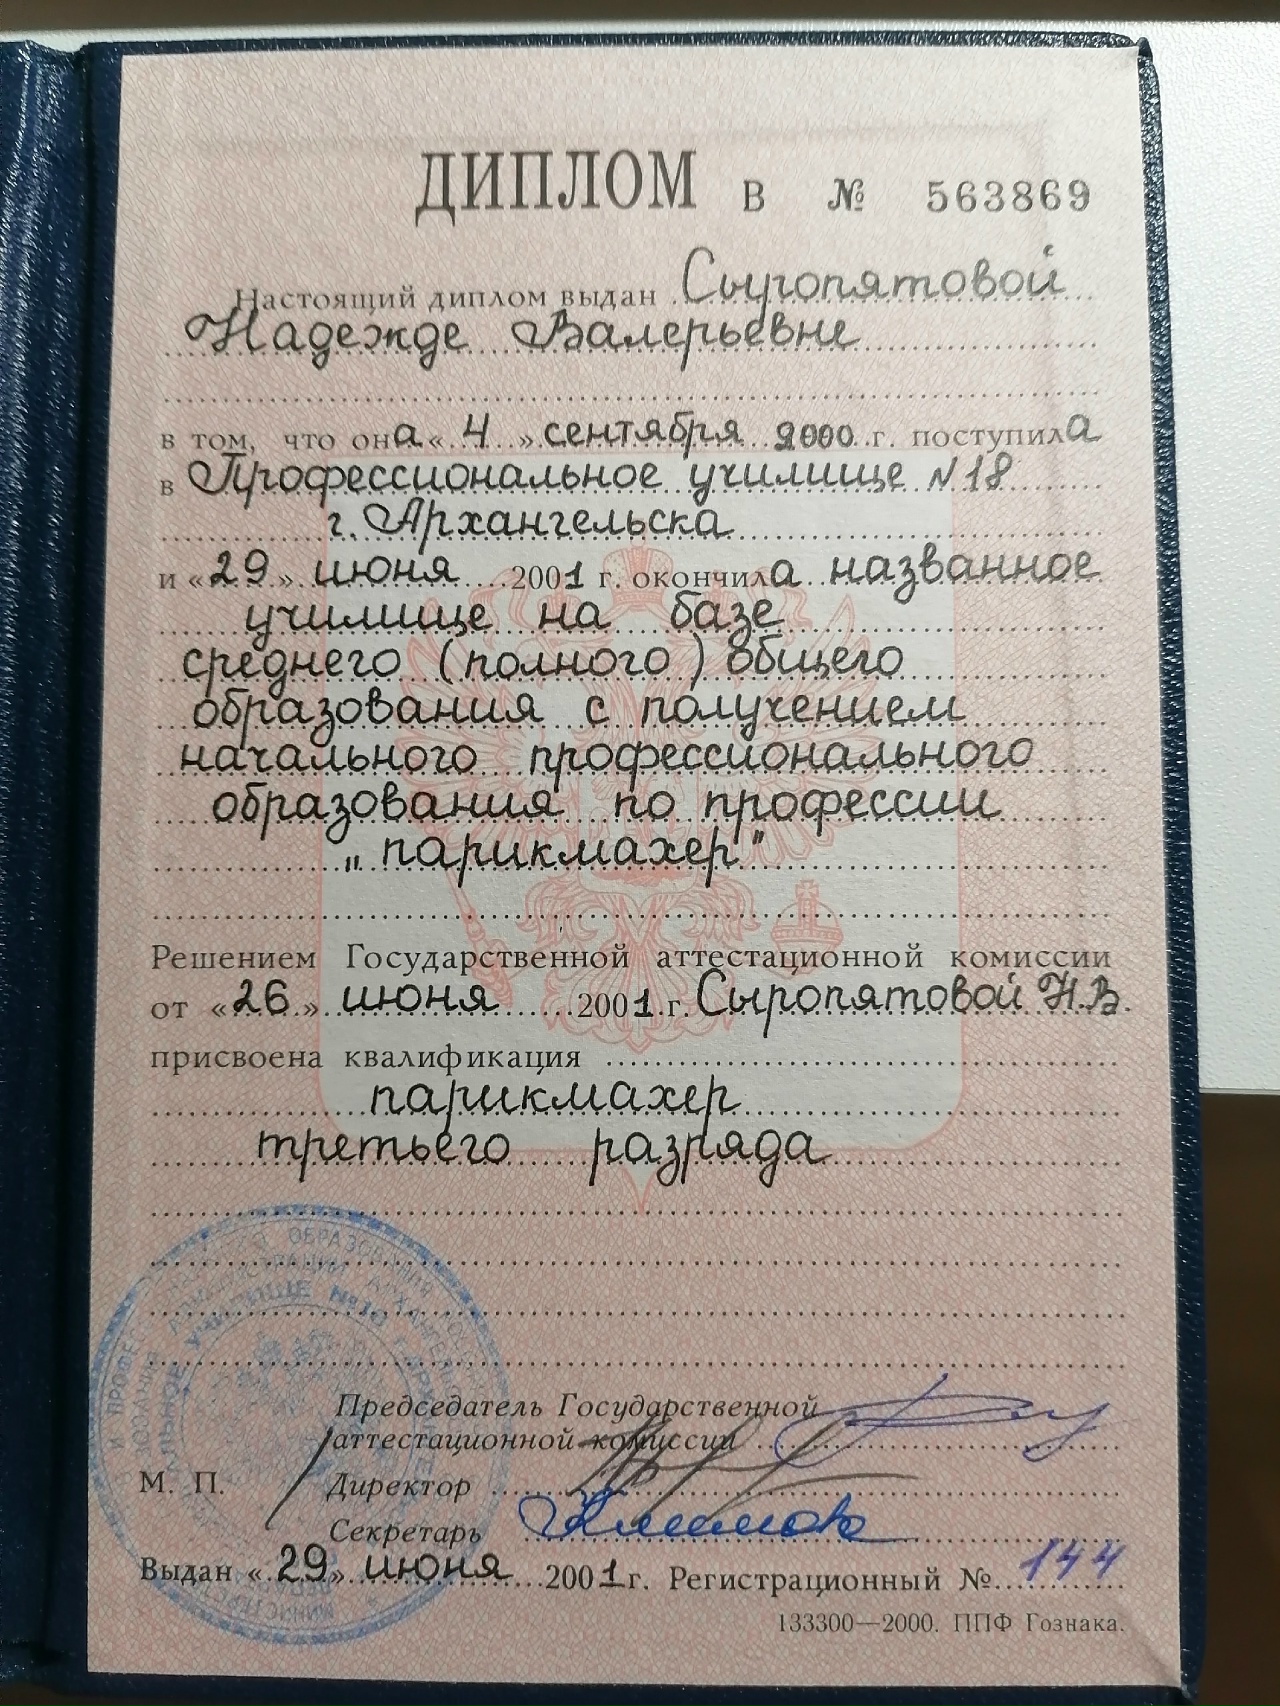 ДИПЛОМ В № 563869
Настоящий диплом выдан Сыропятовой
Надежде Валерьевне
в том, что она «4» сентября 2000 г. поступила
в Профессиональное училище N 18
г. Архангельска
и «29» июня 2001 г. окончила названное
училище на базе
среднего (полного) общего
образования с получением
начального профессионального
образования по профессии
„парикмахер"
Решением Государственной аттестационной комиссии
от «26» июня 2001 г. Сыропятовой Н.В.
присвоена квалификация
парикмахер
третьего разряда
Председатель Государственной
аттестационной комиссии
М. П. Директор
Секретарь Климова
Выдан «29» июня 2001 г. Регистрационный № 144
133300—2000. ППФ Гознака.